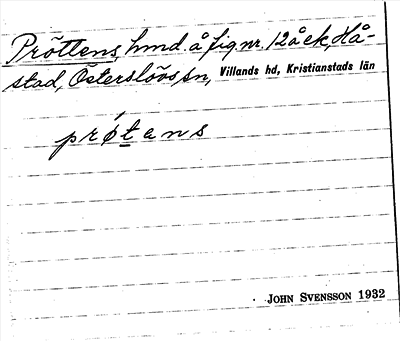 Pröttens, hmd. å fig nr. 12 å ek, Hå-
stad, Österslövs sn, Villands hd, Kristianstads län
prǿtens
JOHN SVENSSON 1932